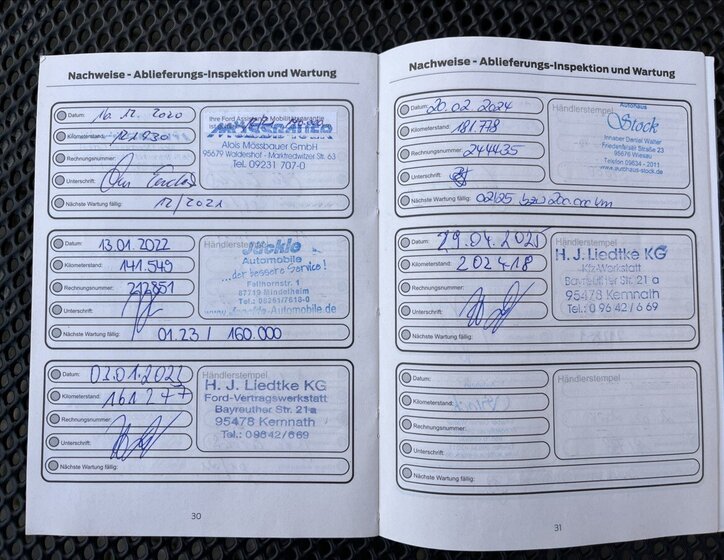 Nachweise - Ablieferungs-Inspektion und Wartung
Datum: 16.12.2020
Kilometerstand: 121930
Rechnungsnummer:
Unterschrift:
Nächste Wartung fällig: 12/2021
Ihre Ford Assistance Mobilitätsgarantie
MÖSSBAUER
Alois Mössbauer GmbH
95679 Waldershof - Marktredwitzer Str. 63
Tel. 09231 707-0
Datum: 13.01.2022
Kilometerstand: 141.549
Rechnungsnummer: 212851
Unterschrift:
Nächste Wartung fällig: 01.23 / 160.000
Händlerstempel
Jäckle
Automobile
...der bessere Service!
Fellhornstr. 1
87719 Mindelheim
Tel.: 08261/7618-0
Datum: 03.01.2023
Kilometerstand: 161277
Rechnungsnummer:
Unterschrift:
Nächste Wartung fällig:
Händlerstempel
H. J. Liedtke KG
Ford-Vertragswerkstatt
Bayreuther Str. 21a
95478 Kemnath
Tel.: 09642/669
30
Nachweise - Ablieferungs-Inspektion und Wartung
Datum: 20.02.2024
Kilometerstand: 181.778
Rechnungsnummer: 244435
Unterschrift:
Nächste Wartung fällig: 02/25 bzw 200.000 km
Händlerstempel
Autohaus
Stock
Inhaber Daniel Walter
Friedenfelser Straße 23
95676 Wiesau
Telefon 09634 - 2011
www.autohaus-stock.de
Datum: 29.04.2025
Kilometerstand: 202418
Rechnungsnummer:
Unterschrift:
Nächste Wartung fällig:
Händlerstempel
H. J. Liedtke KG
Kfz-Werkstatt
Bayreuther Str. 21 a
95478 Kemnath
Tel.: 0 96 42 / 6 69
Datum:
Kilometerstand:
Rechnungsnummer:
Unterschrift:
Nächste Wartung fällig:
Händlerstempel
31